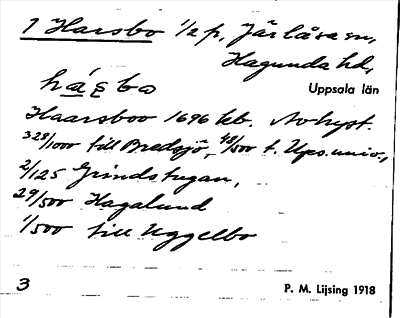 1 Harsbo 1/2 p, Järlåsa sn,
Hagunda hd,
Uppsala län
Haarsboo 1696 kb. Avhyst.
328/1000 till Bredsjö, 48/500 t. Ups. univ.,
2/125 Grindstugan,
29/500 Hagalund
1/500 till Uggelbo
3
P. M. Lijsing 1918